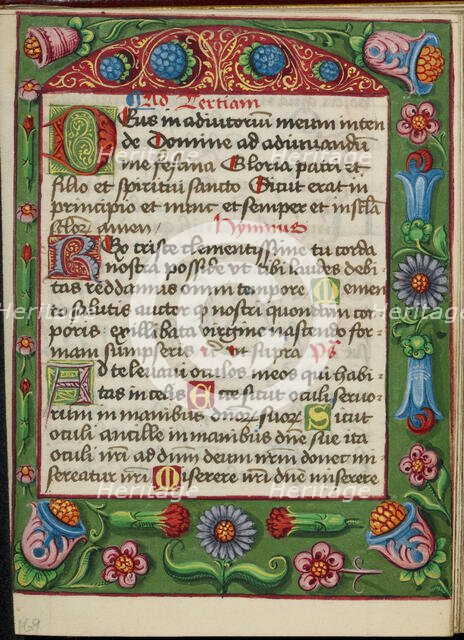 Ad Tertiam
Deus in adiutorium meum inten
de Domine ad adiuuandū
me festina Gloria patri et
filio et spiritui sancto Sicut erat in
principio et nunc et semper et in scła
słor amen Hymnus
Rex criste clementissime tu corda
nostra posside vt tibi laudes debi
tas reddamus omni tempore Memen
to salutis auctor q nostri quondam cor
poris ex illibata virgine nascendo for
mam sumpseris vt supra ps
Ad te leuaui oculos meos qui habi
tas in celis Ecce sicut oculi seruo
rum in manibus dnor suor Sicut
oculi ancille in manibus dne sue ita
oculi nri ad dnm deum nrm donec mi
sereatur nri Miserere nri dne miserere
169
Heritage
Heritage
Heritage
Heritage
Heritage
Heritage